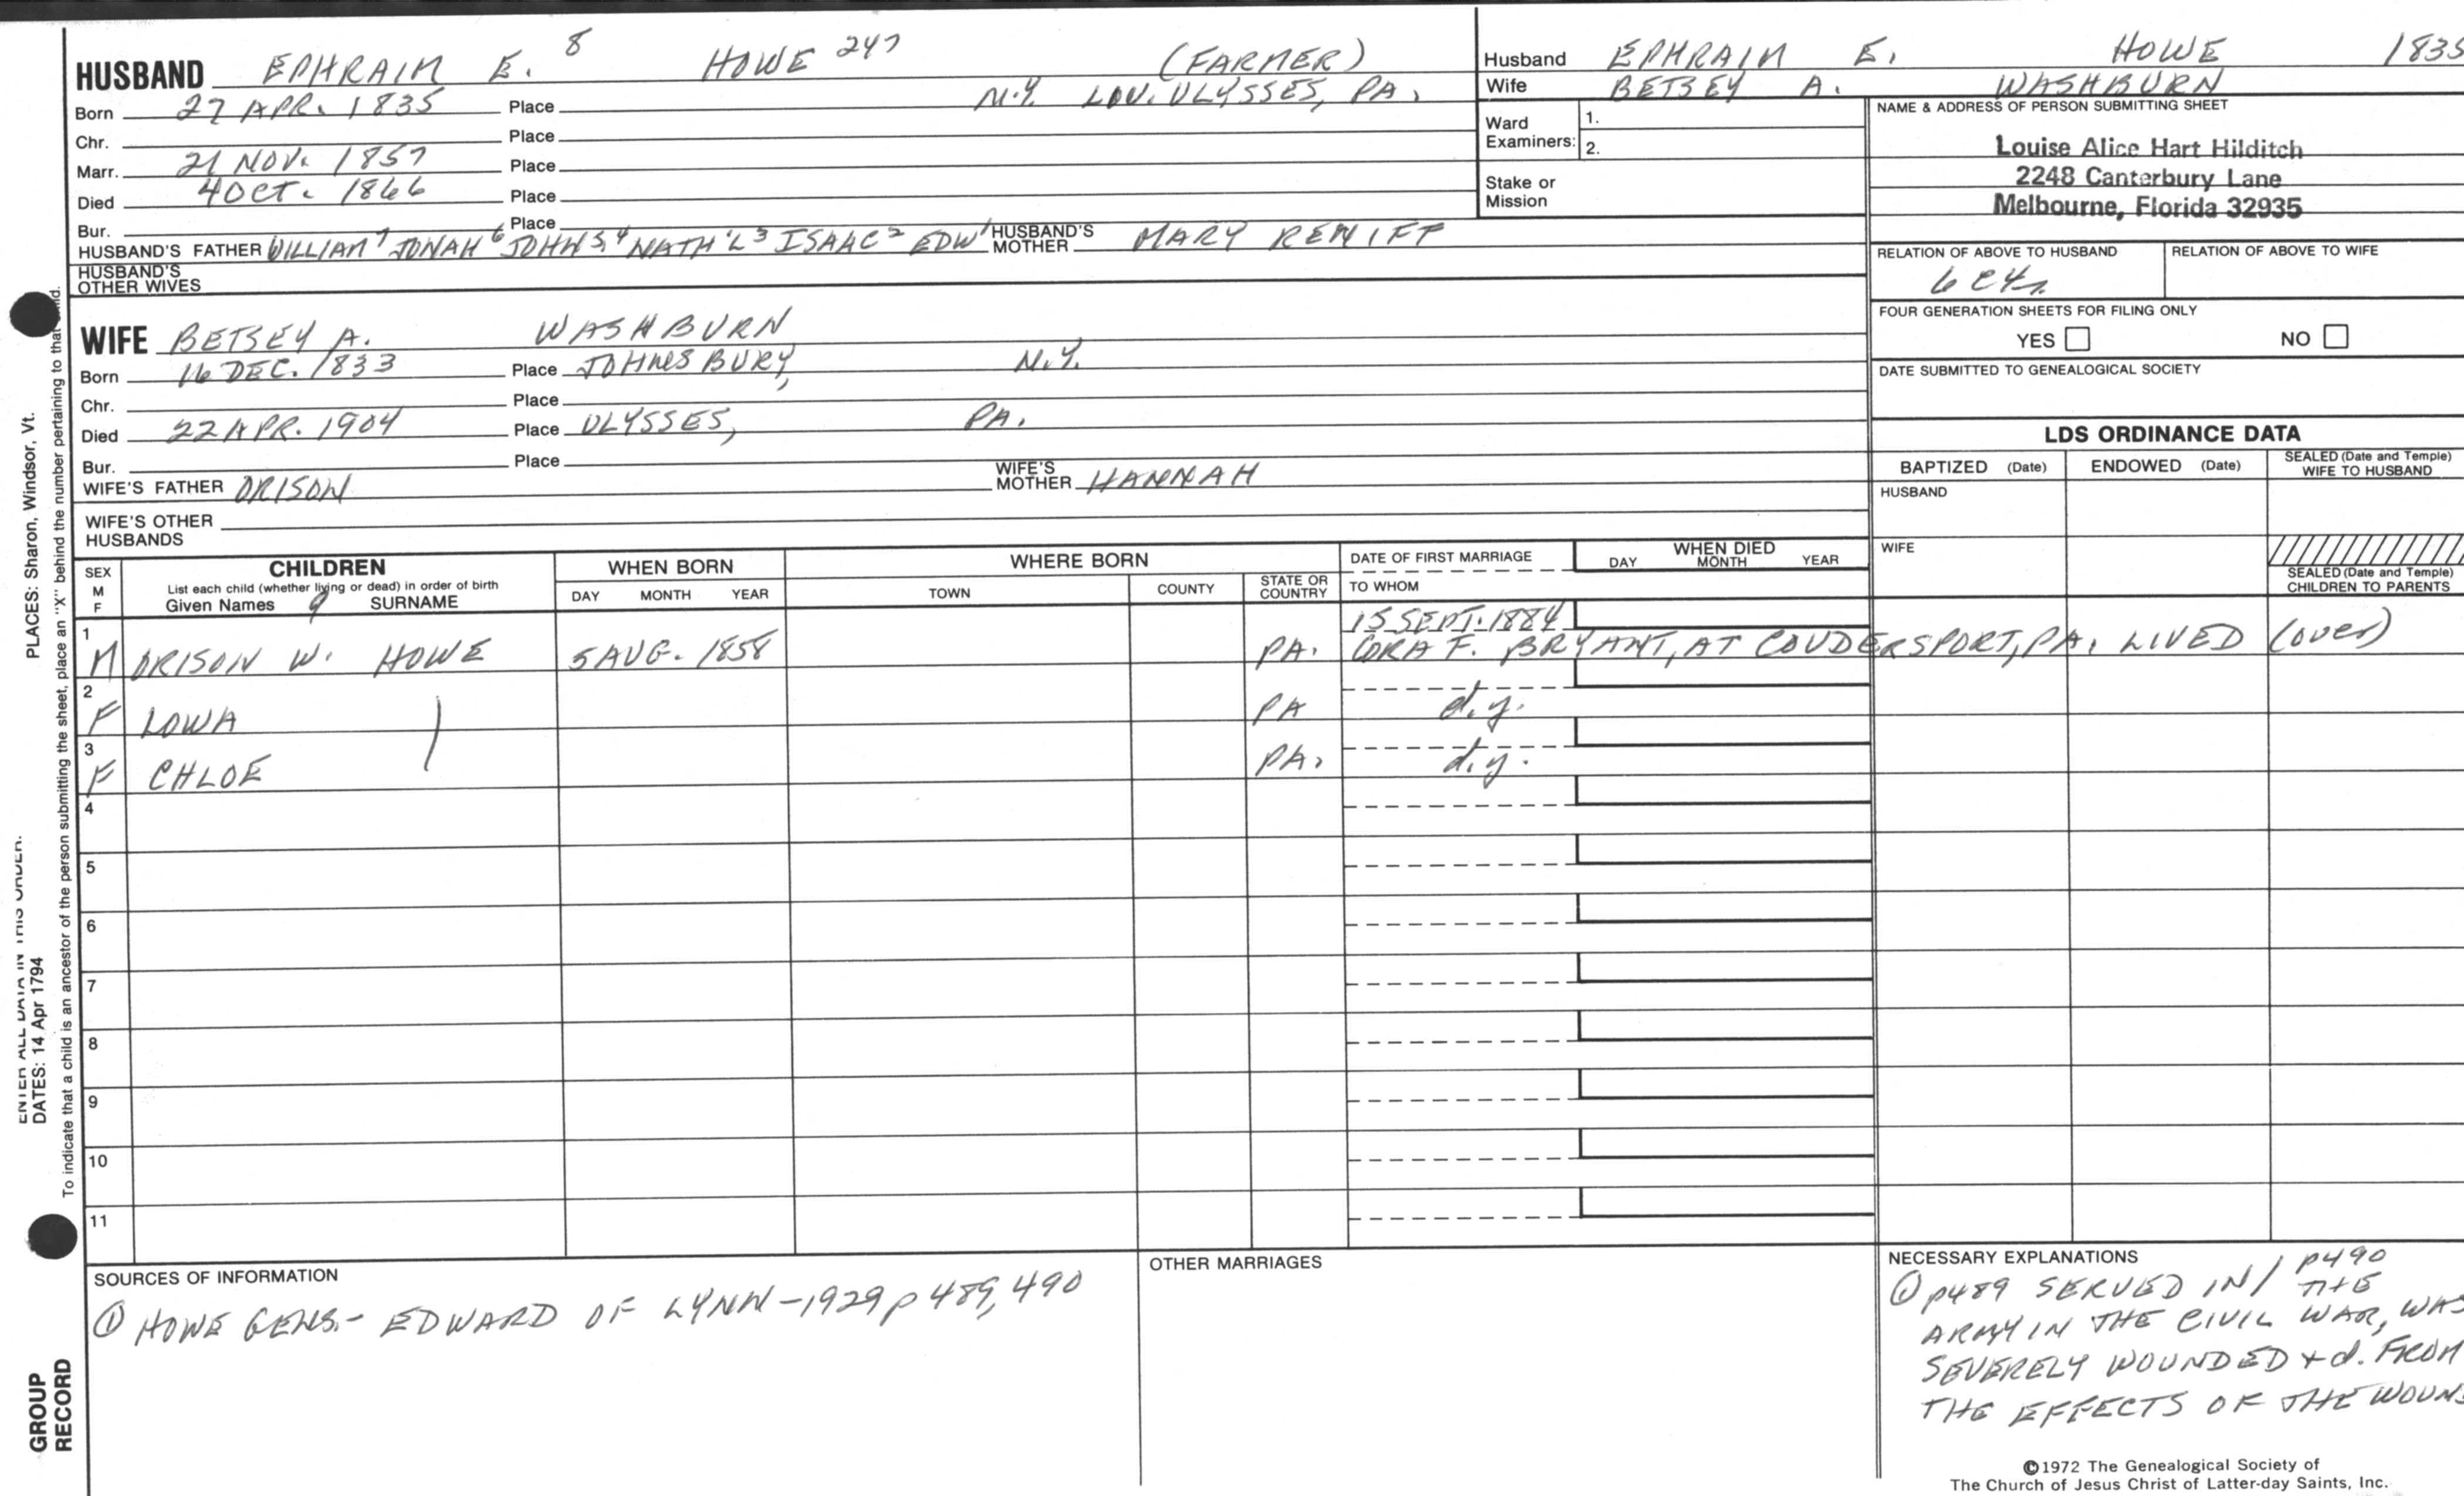 HUSBAND EPHRAIM E. 8 HOWE 247 (FARMER)
Born 27 APR. 1835 Place N.Y. ULYSSES, PA.
Chr. Place
Marr. 21 NOV. 1857 Place
Died 4 OCT. 1866 Place
Bur. Place
HUSBAND'S FATHER WILLIAM 7 JONAH 6 JOHN 5,4 NATH'L 3 ISAAC 2 EDW 1 HUSBAND'S MOTHER MARY
HUSBAND'S OTHER WIVES
Husband EPHRAIM E. HOWE 1835
Wife BETSEY A. WASHBURN
Ward Examiners: 1.
2.
Stake or Mission
NAME & ADDRESS OF PERSON SUBMITTING SHEET
Louise Alice Hart Hilditch
2248 Canterbury Lane
Melbourne, Florida 32935
RELATION OF ABOVE TO HUSBAND RELATION OF ABOVE TO WIFE
FOUR GENERATION SHEETS FOR FILING ONLY
YES NO
DATE SUBMITTED TO GENEALOGICAL SOCIETY
WIFE BETSEY A. WASHBURN
Born 16 DEC. 1833 Place JOHNSBURY, N.Y.
Chr. Place
Died 22 APR. 1904 Place ULYSSES, PA.
Bur. Place
WIFE'S FATHER ORISON WIFE'S MOTHER HANNAH
WIFE'S OTHER HUSBANDS
LDS ORDINANCE DATA
BAPTIZED (Date) ENDOWED (Date) SEALED (Date and Temple) WIFE TO HUSBAND
HUSBAND
WIFE
SEALED (Date and Temple) CHILDREN TO PARENTS
SEX M F CHILDREN WHEN BORN WHERE BORN DATE OF FIRST MARRIAGE WHEN DIED
List each child (whether living or dead) in order of birth
Given Names 9 SURNAME DAY MONTH YEAR TOWN COUNTY STATE OR COUNTRY TO WHOM DAY MONTH YEAR
15 SEPT. 1884
1 M ORISON W. HOWE 5 AUG. 1858 PA. CORA F. BRYANT, AT COUDERSPORT, PA. LIVED (over)
2 F LOWA PA d.y.
3 F CHLOE PA. d.y.
4
5
6
7
8
9
10
11
SOURCES OF INFORMATION
① HOWE GENS.- EDWARD OF LYNN-1929 p 489, 490
OTHER MARRIAGES
NECESSARY EXPLANATIONS
① p489 SERVED IN / p490 THE
ARMY IN THE CIVIL WAR, WAS
SEVERELY WOUNDED + d. FROM
THE EFFECTS OF THE
©1972 The Genealogical Society of
The Church of Jesus Christ of Latter-day Saints, Inc.
PLACES: Sharon, Windsor, Vt.
To indicate that a child is an ancestor of the person submitting the sheet, place an "X" behind the number pertaining to that child.
ENTER ALL DATA IN THIS ORDER:
DATES: 14 Apr 1794
GROUP RECORD